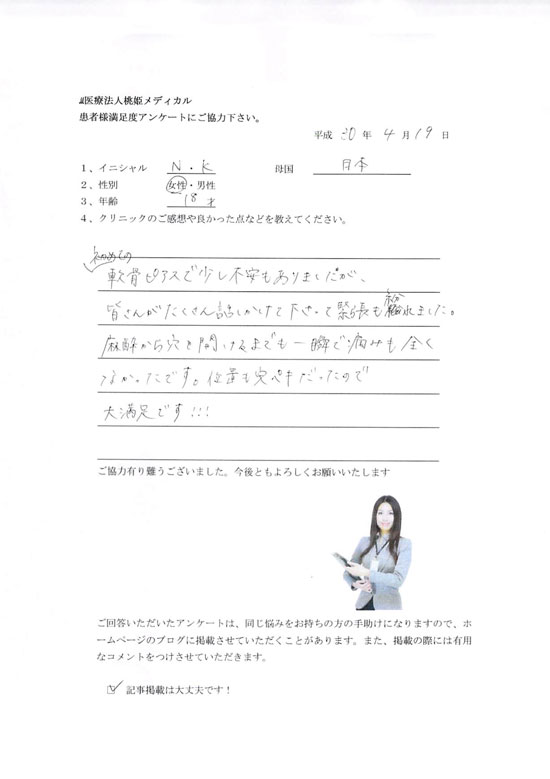 医療法人桃姫メディカル
患者様満足度アンケートにご協力下さい。
平成 30 年 4 月 19 日
1、イニシャル N・K 母国 日本
2、性別 女性・男性
3、年齢 18 才
4、クリニックのご感想や良かった点などを教えてください。
初めての
軟骨ピアスで少し不安もありましたが、
皆さんがたくさん話しかけて下さって緊張も 紛れました。
麻酔から穴を開けるまでも一瞬で痛みも全く
なかったです。位置も完ペキだったので
大満足です!!!
ご協力有り難うございました。今後ともよろしくお願いいたします
ご回答いただいたアンケートは、同じ悩みをお持ちの方の手助けになりますので、ホ
ームページのブログに掲載させていただくことがあります。また、掲載の際には有用
なコメントをつけさせていただきます。
☑ 記事掲載は大丈夫です!